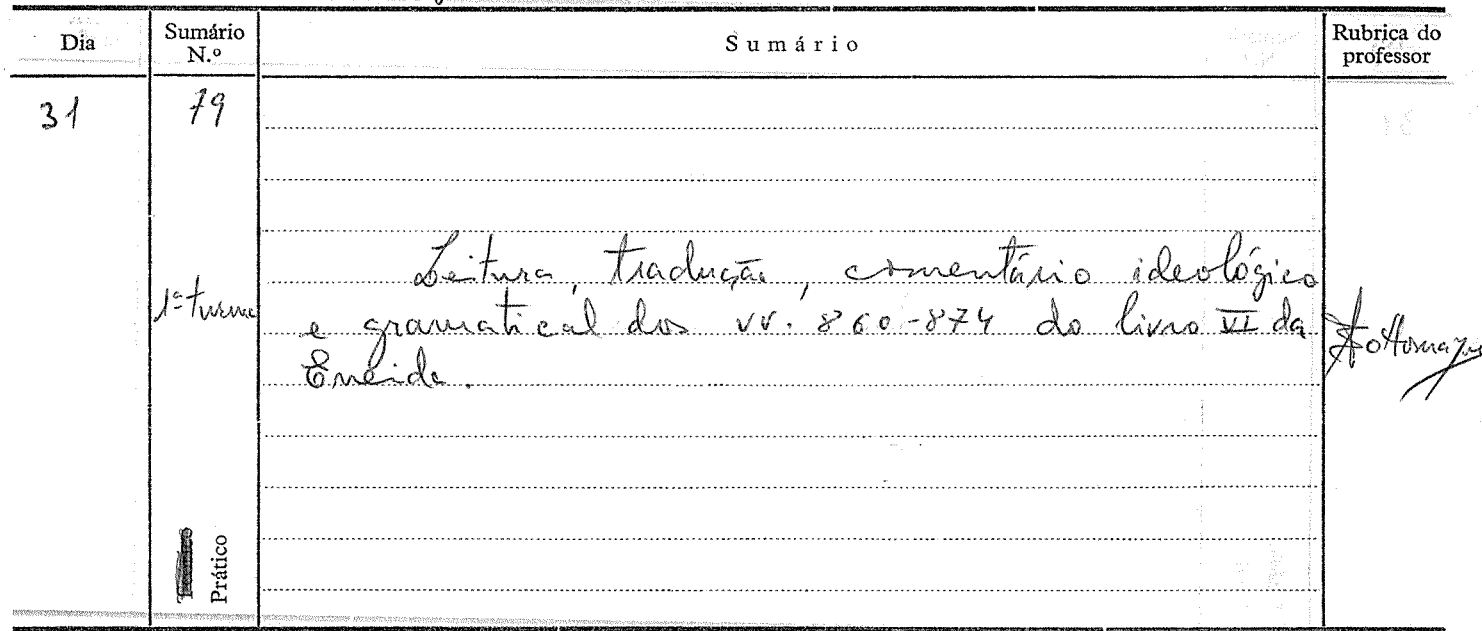 Dia
Sumário
N.º
Sumário
Rubrica do
professor
31
79
1ª turma
Leitura, tradução, comentário ideológico
e gramatical dos vv. 860-874 do livro VI da
Eneida.
Prático